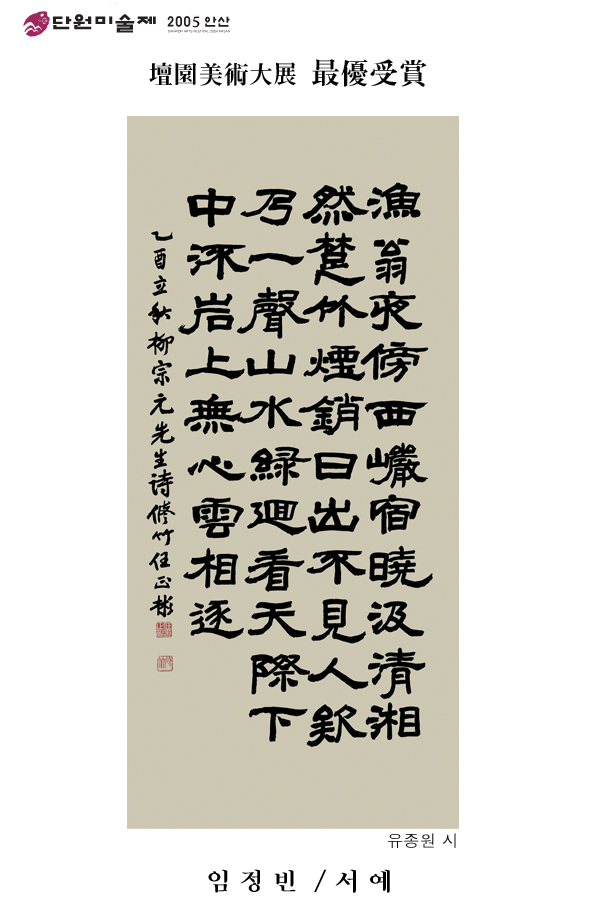 단원미술제 2005 안산
壇園美術大展 最優受賞
漁翁夜傍西巖宿曉汲清湘
然楚竹煙銷日出不見人欸
乃一聲山水緑廻看天際下
中流岩上無心雲相逐
乙酉立秋柳宗元先生诗修竹任正彬
유종원 시
임정빈 / 서예